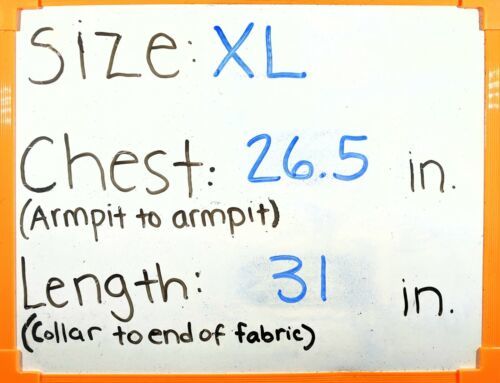 Size: XL
Chest: 26.5 in.
(Armpit to armpit)
Length: 31 in.
(Collar to end of fabric)